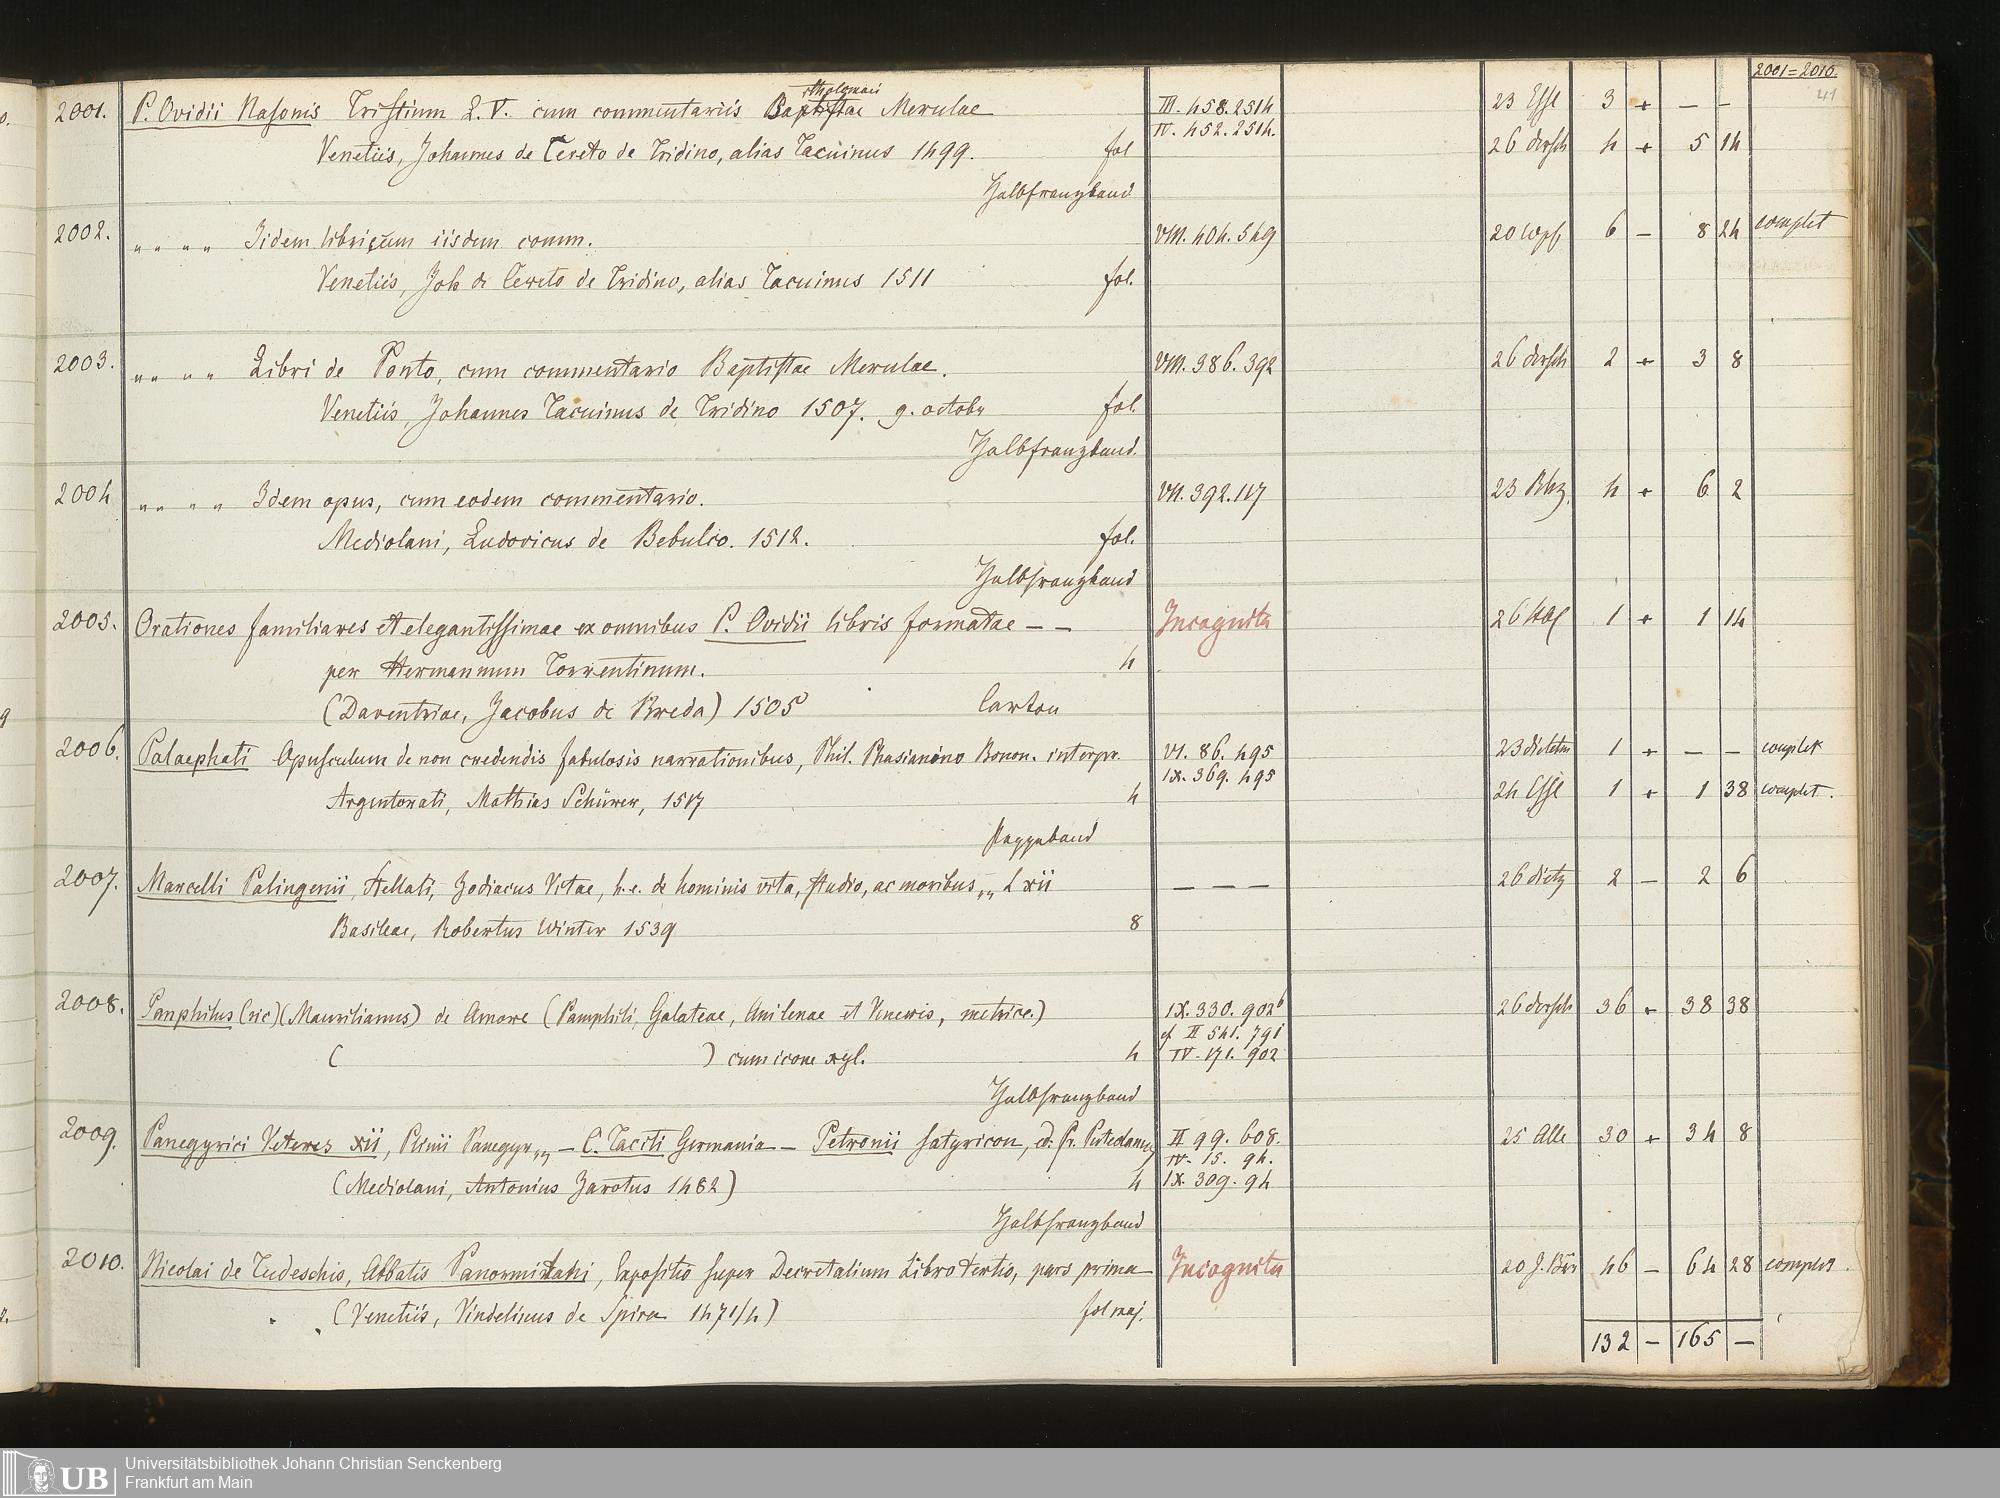 2001=2010.
41
2001. P. Ovidii Nasonis Tristium L. V. cum commentariis Baptistae Merulae III. 458. 2514 23 Essl 3 + — —
tholomaei
IV. 452. 2514.
Venetiis, Johannes de Cereto de Tridino, alias Tacuinus 1499. fol 26 dorsch 4 + 5 14
Halbfranzband
2002. „ „ „ „ Iidem libri cum iisdem comm. VIII. 404. 549 6 — 8 24 complet
Venetiis, Joh de Cereto de Tridino, alias Tacuinus 1511 fol.
2003. „ „ „ „ Libri de Ponto, cum commentario Baptistae Merulae. VIII. 386. 392 26 dorsch 2 + 3 8
Venetiis, Johannes Tacuinus de Tridino 1507. 9. octobr fol.
Halbfranzband.
2004 „ „ „ „ Idem opus, cum eodem commentario. VII. 392. 117 4 + 6 2
Mediolani, Ludovicus de Bebulco. 1512. fol.
Halbfranzband
2005. Orationes familiares et elegantissimae ex omnibus P. Ovidii libris formatae — — Incognita 1 + 1 14
per Hermannum Torrentinum. 4
(Daventriae, Jacobus de Breda) 1505 Carton
2006. Palaephati Opusculum de non credendis fabulosis narrationibus, Phil. Phasianino Bonon. interpr. VI. 86. 495 1 + — — complet
IX. 369. 495
Argentorati, Mathias Schürer, 1517 4 24 Essl 1 + 1 38 complet.
Pappband
2007. Marcelli Palingenii, Stellati, Zodiacus Vitae, h.e. de hominis vita, studio, ac moribus „„ L xii — — — 26 dietz 2 — 2 6
Basileae, Robertus Winter 1539 8
2008. Panphilus (sic) (Maurilianus) de Amore (Pamphili, Galateae, Anilenae et Veneris, metrice.) IX. 330. 902b 26 dorsch 36 + 38 38
cf II 541. 791
( ) cum icone xyl. 4 IV. 171. 902
Halbfranzband
2009. Panegyrici Veteres xii, Plinii Panegyr „„ — C. Taciti Germania — Petronii satyricon, ed. Fr. Puteolanus II 99. 608. 25 Alle 30 + 34 8
IV. 15. 94.
(Mediolani, Antonius Zarotus 1482) 4 IX. 309. 94
Halbfranzband
2010. Nicolai de Tudeschis, Abbatis Panormitani, Expositio super Decretalium Libro tertio, pars prima Incognita 20 J. Bär 46 — 64 28 complet.
(Venetiis, Vindelinus de Spira 1471/4) fol maj.
132 — 165 —
UB Universitätsbibliothek Johann Christian Senckenberg
Frankfurt am Main